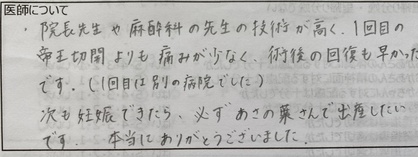 医師について
・院長先生や麻酔科の先生の技術が高く、1回目の
帝王切開よりも痛みが少なく、術後の回復も早かった
です。(1回目は別の病院でした)
次も妊娠できたら、必ずあさの葉さんで出産したい
です。 本当にありがとうございました。